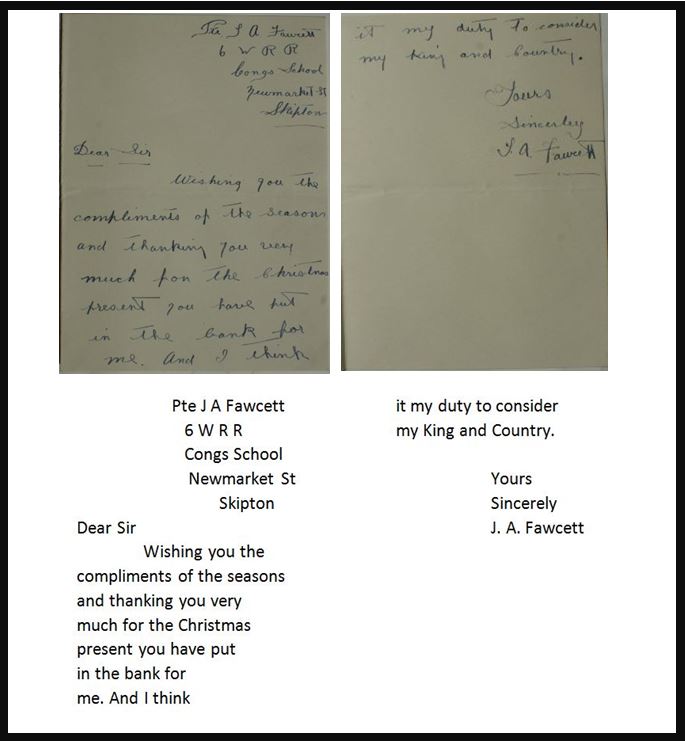 Pte J A Fawcett
6 W R R
Congs School
Newmarket St
Skipton
Dear Sir
Wishing you the
compliments of the seasons
and thanking you very
much for the Christmas
present you have put
in the bank for
me. And I think
it my duty to consider
my King and Country.
Yours
Sincerely
J. A. Fawcett
Pte J A Fawcett
6 W R R
Congs School
Newmarket St
Skipton
Dear Sir
Wishing you the
compliments of the seasons
and thanking you very
much for the Christmas
present you have put
in the bank for
me. And I think
it my duty to consider
my King and Country.
Yours
Sincerely
J. A. Fawcett